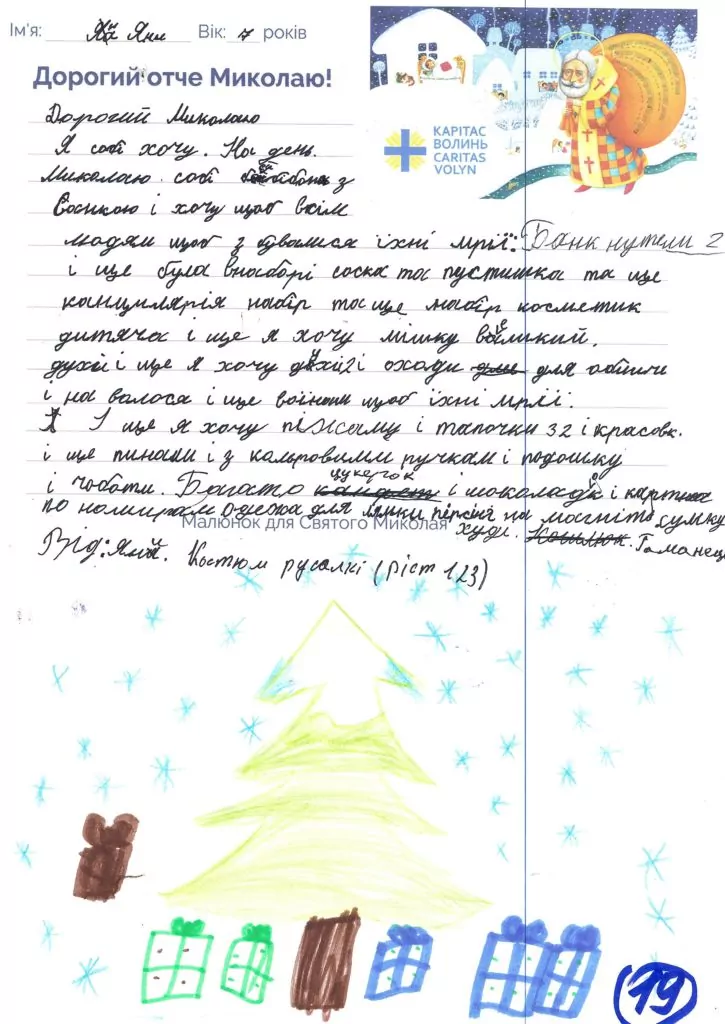 Ім'я: Яна Яни Вік: 7 років
Дорогий отче Миколаю!
КАРІТАС
ВОЛИНЬ
CARITAS
VOLYN
Дорогий Миколаю
Я собі хочу. На день.
Миколаю собі з
і хочу щоб всім
людям щоб з бувалися їхні мрії: Банк нутели 2
і ще була внаборі соска та пустишка та ще
канцилярія набір та ще набір косметик
дитяча і ще я хочу мішку великий.
духи і ще я хочу духи 2 і для
і на волося і ще воїнам щоб їхні мрії.
Я І ще я хочу піжаму і тапочки 32 і красовк.
і ще пинали і з кальровими ручкам і подошку
цукерок
і чоботи. Багато і шоколадок і картина
по номирам одежа для лямки персня на магніті сумку
Малюнок для Святого Миколая
худи. Гаманец
Від: Яна. Костюм русалкі (ріст 123)
19